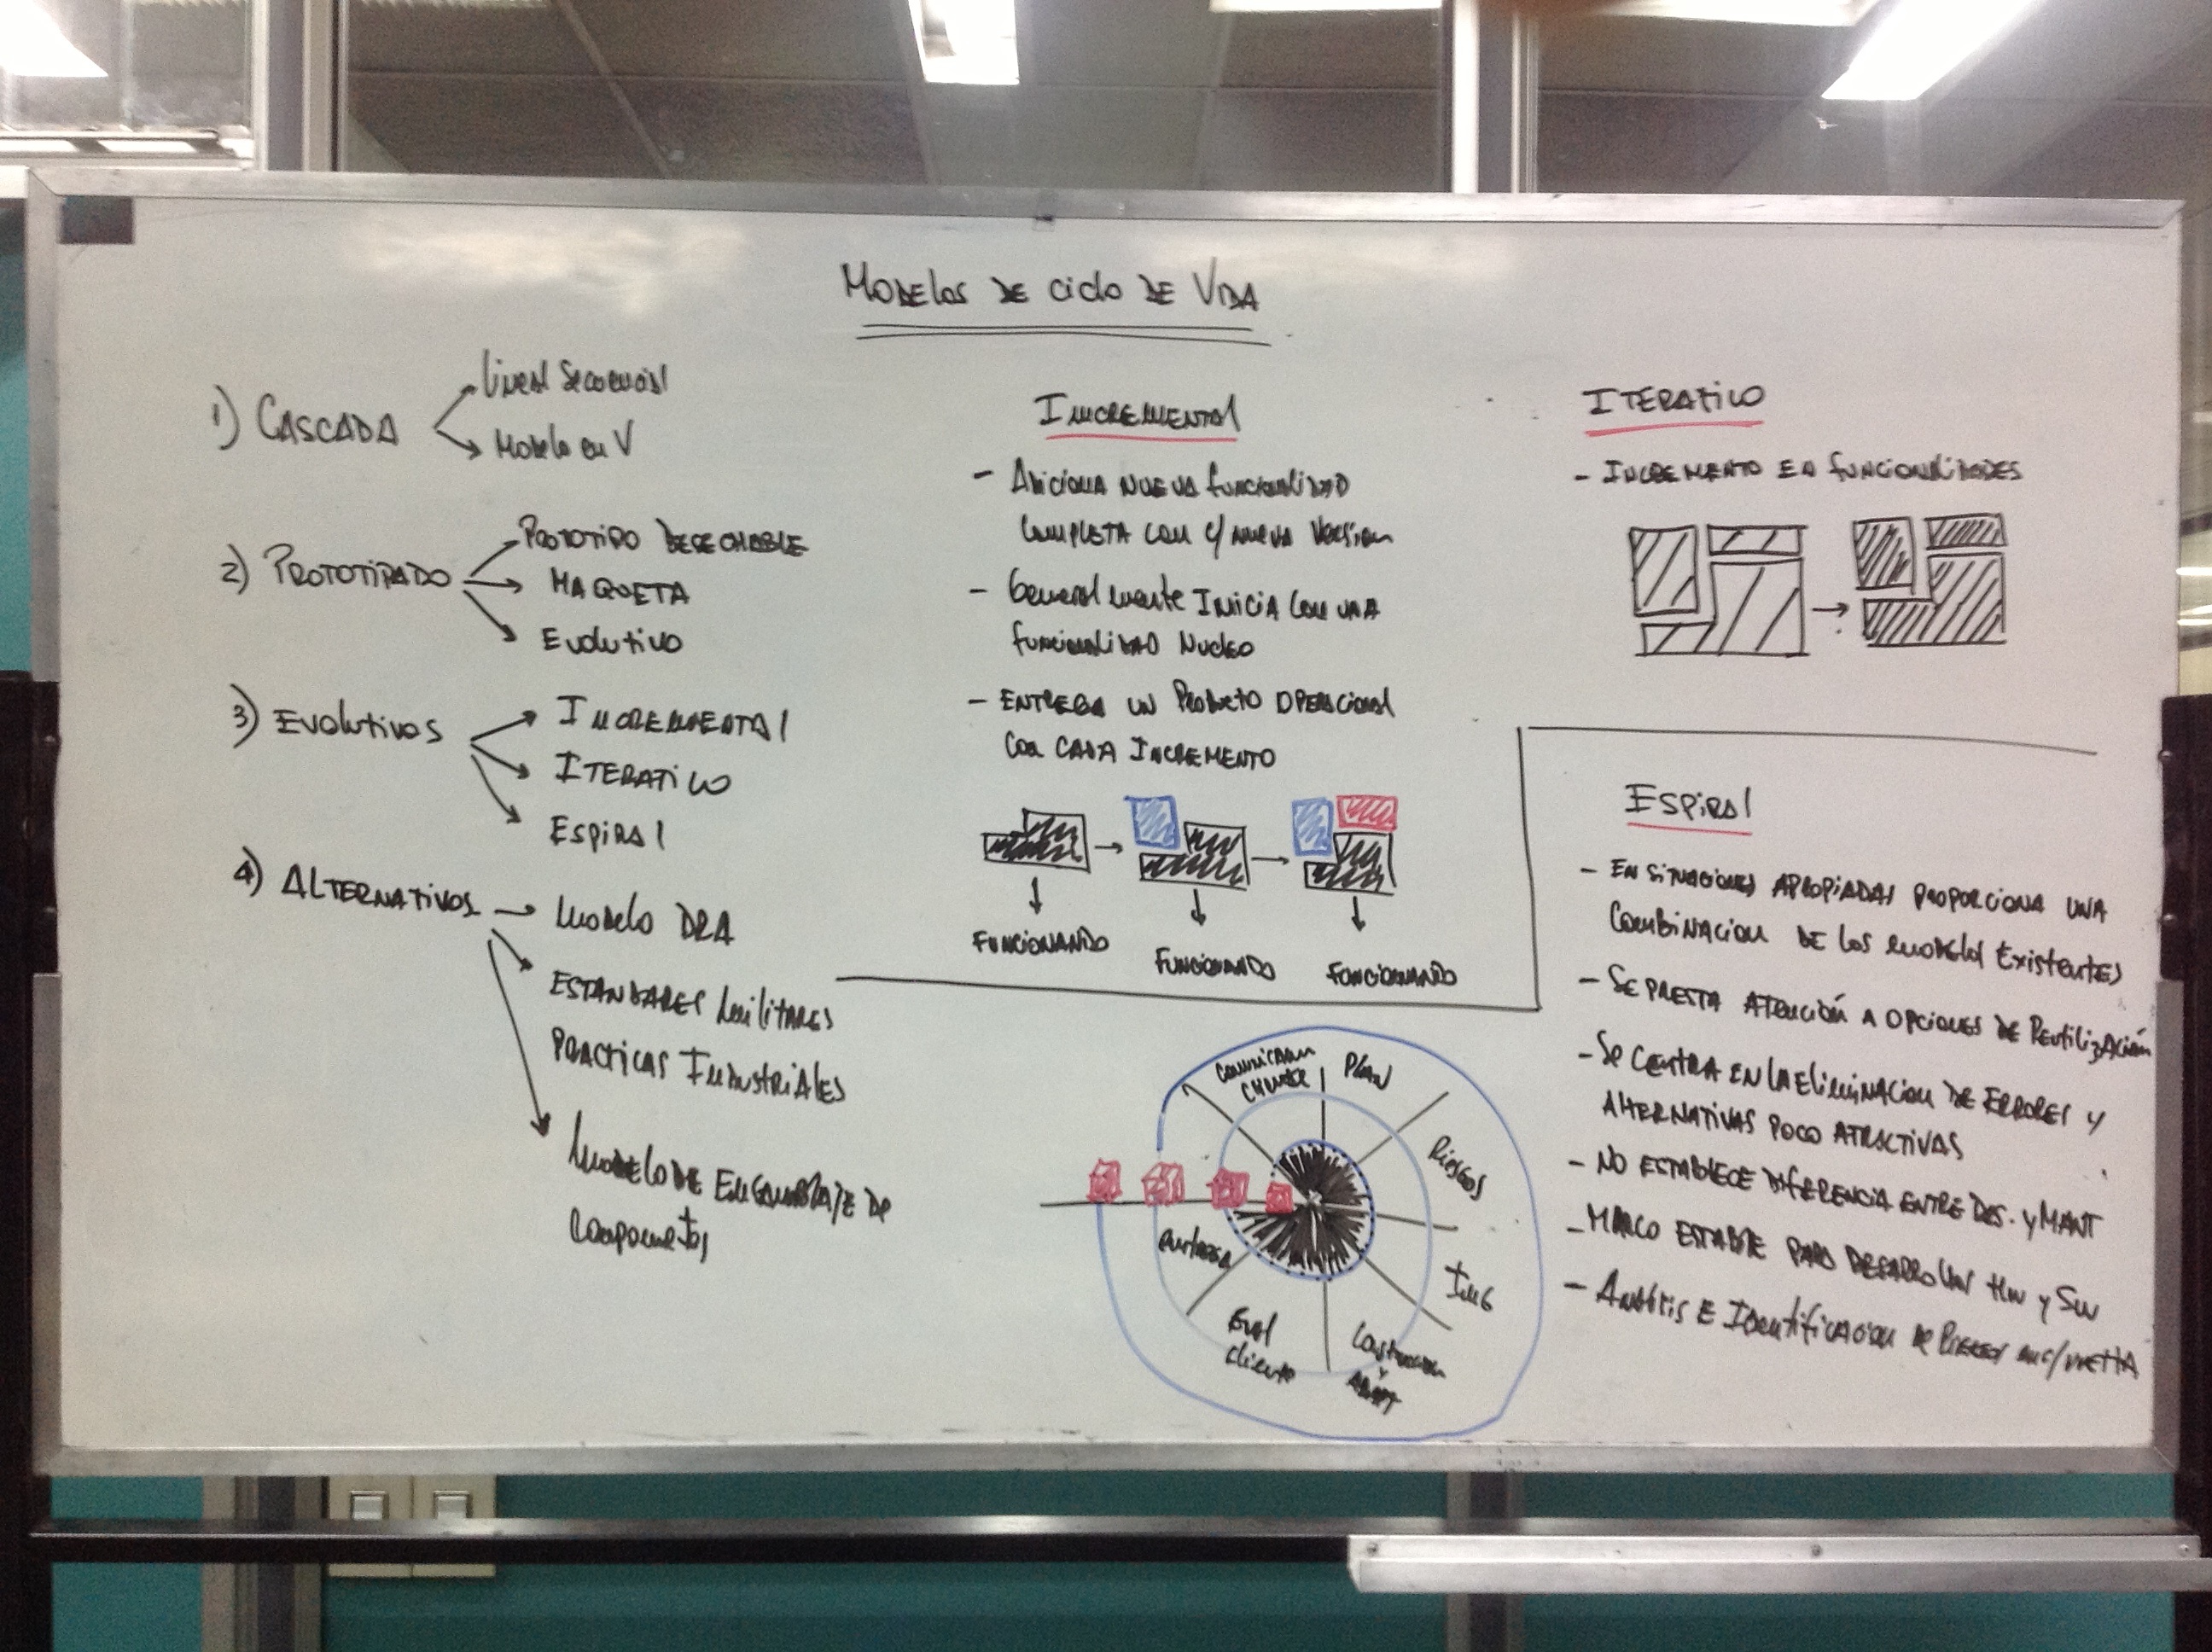 MODELOS DE CICLO DE VIDA
1) CASCADA
Lineal Secuencial
Modelo en V
2) PROTOTIPADO
PROTOTIPO DESECHABLE
MAQUETA
Evolutivo
3) Evolutivos
INCREMENTAL
ITERATIVO
ESPIRAL
4) ALTERNATIVOS
Modelo DRA
ESTANDARES Militares
PRACTICAS INDUSTRIALES
Modelo DE Ensamblaje De
Componentes
INCREMENTAL
- Adiciona NUEVA funcionalidad
COMPLETA con c/ nueva Version
- Generalmente INICIA con una
funcionalidad Nucleo
- ENTREGA UN Producto OPERACIONAL
Con CADA INCREMENTO
FUNCIONANDO
FUNCIONANDO
FUNCIONANDO
ITERATIVO
- INCREMENTO EN funcionalidades
ESPIRAL
- EN SITUACIONES APROPIADAS PROPORCIONA UNA
COMBINACION DE LOS MODELOS EXISTENTES
- SE PRESTA ATENCIÓN A OPCIONES DE REUTILIZACIÓN
- Se CENTRA EN LA ELIMINACION DE ERRORES Y
ALTERNATIVAS POCO ATRACTIVAS
- NO ESTABLECE DIFERENCIA ENTRE DES. Y MANT
- MARCO ESTABLE PARA DESARROLLAR HW y SW
- Análisis E Identificación de Riesgos en c/vuelta
Comunicación
CLIENTE
PLAN
Riesgos
ING
Construccion
y
ADAPT
Eval
cliente
entrega